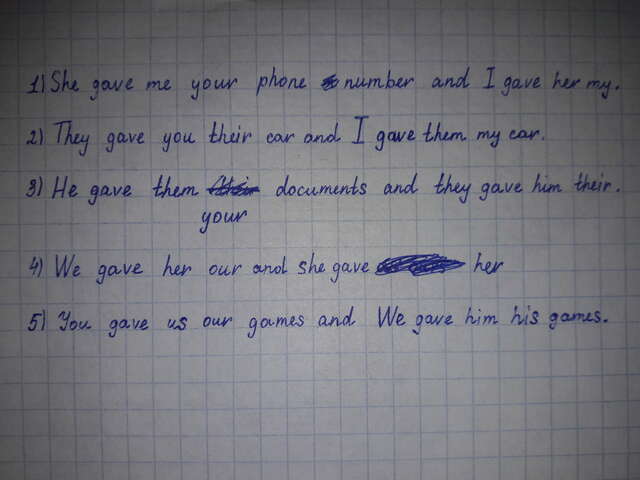 1) She gave me your phone number and I gave her my.
2) They gave you their car and I gave them my car.
3) He gave them documents and they gave him their.
your
4) We gave her our and she gave her
5) You gave us our games and We gave him his games.